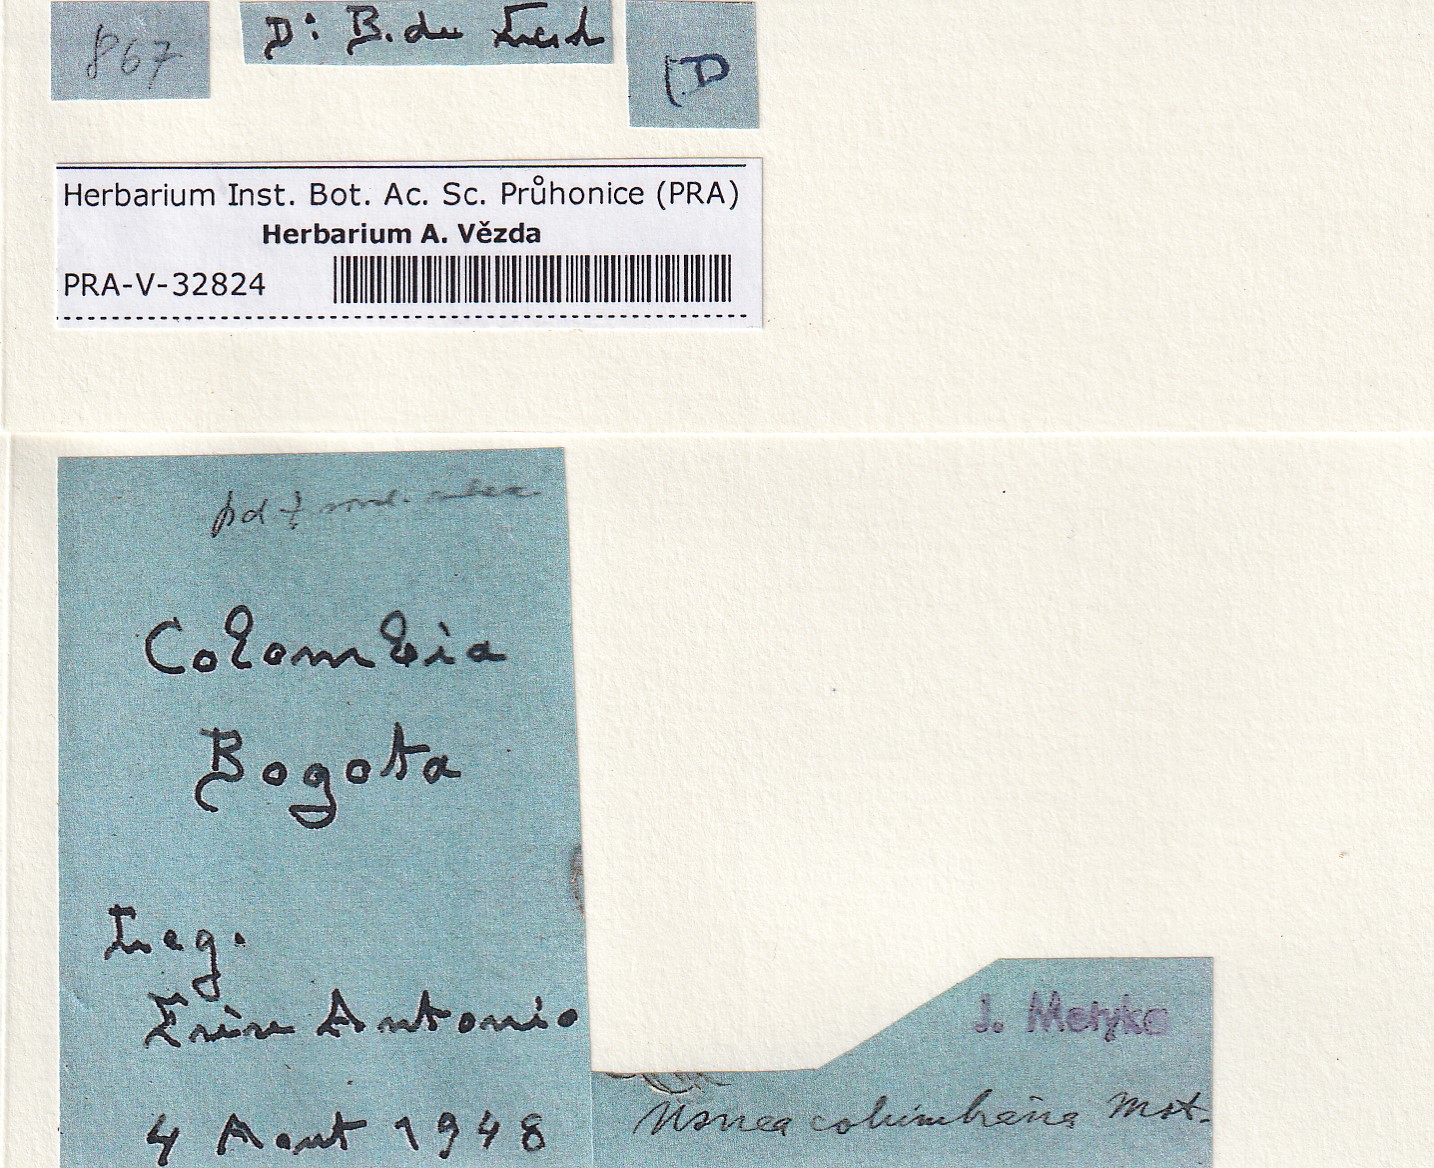 867
D: B. du
(D
Herbarium Inst. Bot. Ac. Sc. Průhonice (PRA)
Herbarium A. Vězda
PRA-V-32824
pd
Colombia
Bogota
Leg.
Antonio
4 Aout 1948
J. Motyka
Usnea columbiana Mot.